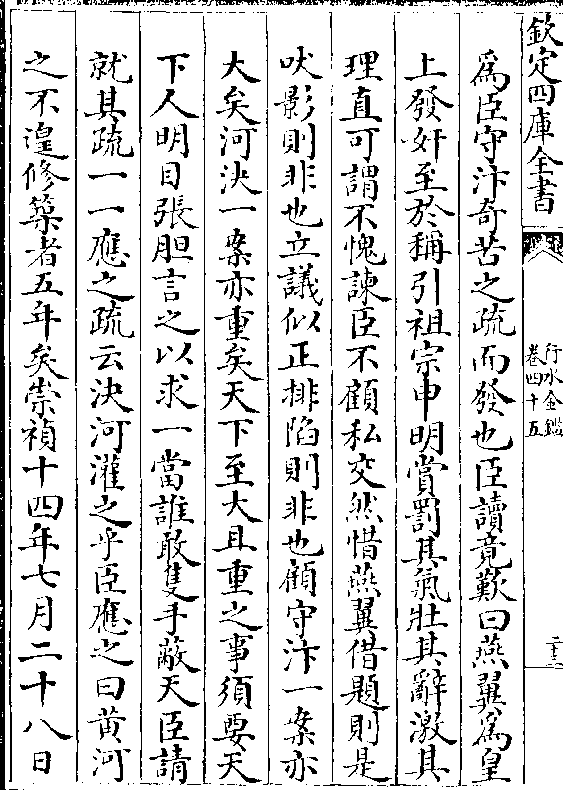 欽定四庫全書
行水金鑑
卷四十五
二十三
為臣守汴奇苦之疏而發也臣讀竟歎曰燕翼為皇
上發奸至於稱引祖宗申明賞罰其氣壯其辭激其
理直可謂不愧諫臣不顧私交然惜燕翼借題則是
吠影則非也立議似正排陷則非也顧守汴一案亦
大矣河決一案亦重矣天下至大且重之事須要天
下人明目張胆言之以求一當誰敢隻手蔽天臣請
就其疏一一應之疏云決河灌之乎臣應之曰黄河
之不遑修築者五年矣崇禎十四年七月二十八日